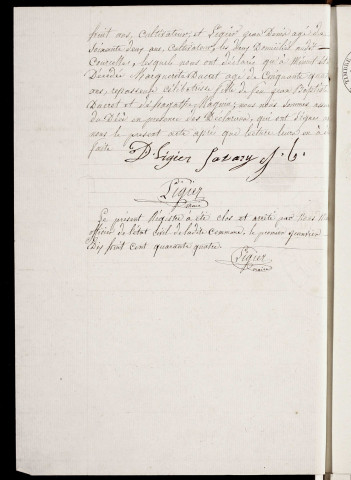 huit ans, Cultivateur, et Ligier Jean Denis agé de
Soixante deux ans, Cultivateur, les deux Domiciliés audit
Courcelles, lesquels nous ont déclaré qu'à
Décédée Marguerite Ducret agé de Cinquante quatre
ans, repasseuse célibataire fille de feu Jean Baptiste
Ducret et de Agathe ; nous nous sommes assuré
du Décès en présence des Déclarants, qui ont Signé avec
nous le présent acte après que lecture leur en a été
faite
D Ligier Savary
Ligier
maire
Le present Registre a été clos et arrêté par Nous Maire
officier de l'état Civil de ladite Commune, le premier Janvier
dix huit cent quarante quatre
Ligier
maire